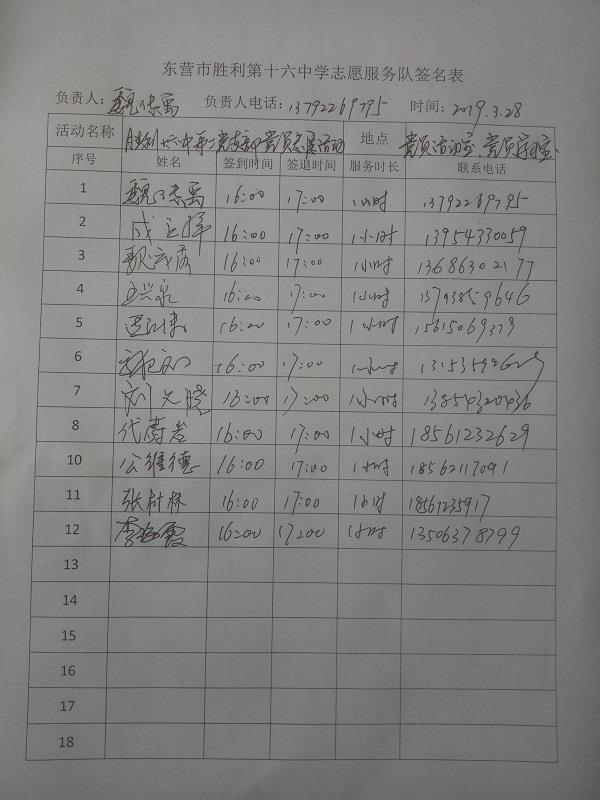 东营市胜利第十六中学志愿服务队签名表
负责人: 负责人电话: 13792269795 时间: 2019.3.28
活动名称 胜利十六中第二党支部党员志愿活动 地点 党员活动室、
序号 姓名 签到时间 签退时间 服务时长 联系电话
1 16:00 17:00 1小时 13792269795
2 16:00 17:00 1小时 13954330059
3 16:00 17:00 1小时 13686302177
4 16:00 17:00 1小时 13793859646
5 16:00 17:00 1小时
6 16:00 17:00 1小时
7 16:00 17:00 1小时 13854320436
8 代蔚岩 16:00 17:00 1小时 18561232629
10 公维德 16:00 17:00 1小时 18562117091
11 张树林 16:00 17:00 1小时 18561235917
12 16:00 17:00 1小时 13506378799
13
14
15
16
17
18